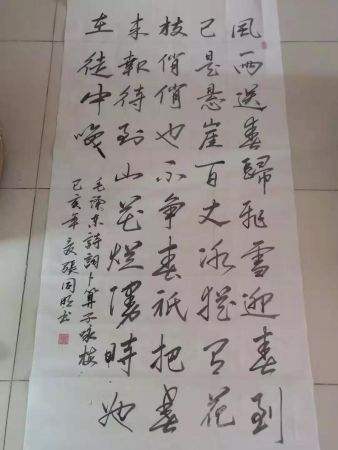 風雨送春歸飛雪迎春到
已是悬崖百丈冰猶有花
枝俏俏也不争春祇把春
来報待到山花爛漫時她
在從中咲
毛澤東詩詞卜算子咏梅
己亥年夏張同书